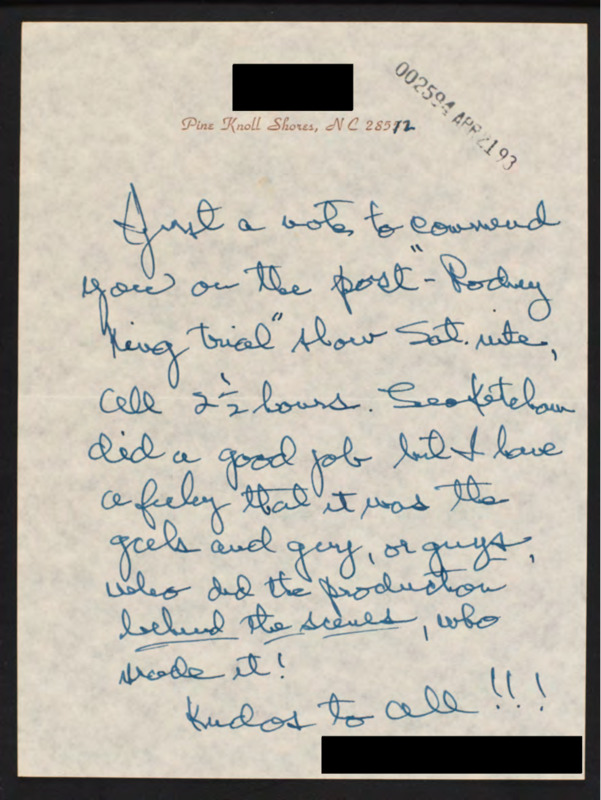 Pine Knoll Shores, NC 28512
002594 APR 21 93
Just a note to commend
you on the post "-Rodney
King trial" show Sat. nite,
all 2 1/2 hours.
did a good job but I have
a feeling that it was the
gals and guy, or guys,
who did the production
behind the scenes, who
made it!
Kudos to all!!!